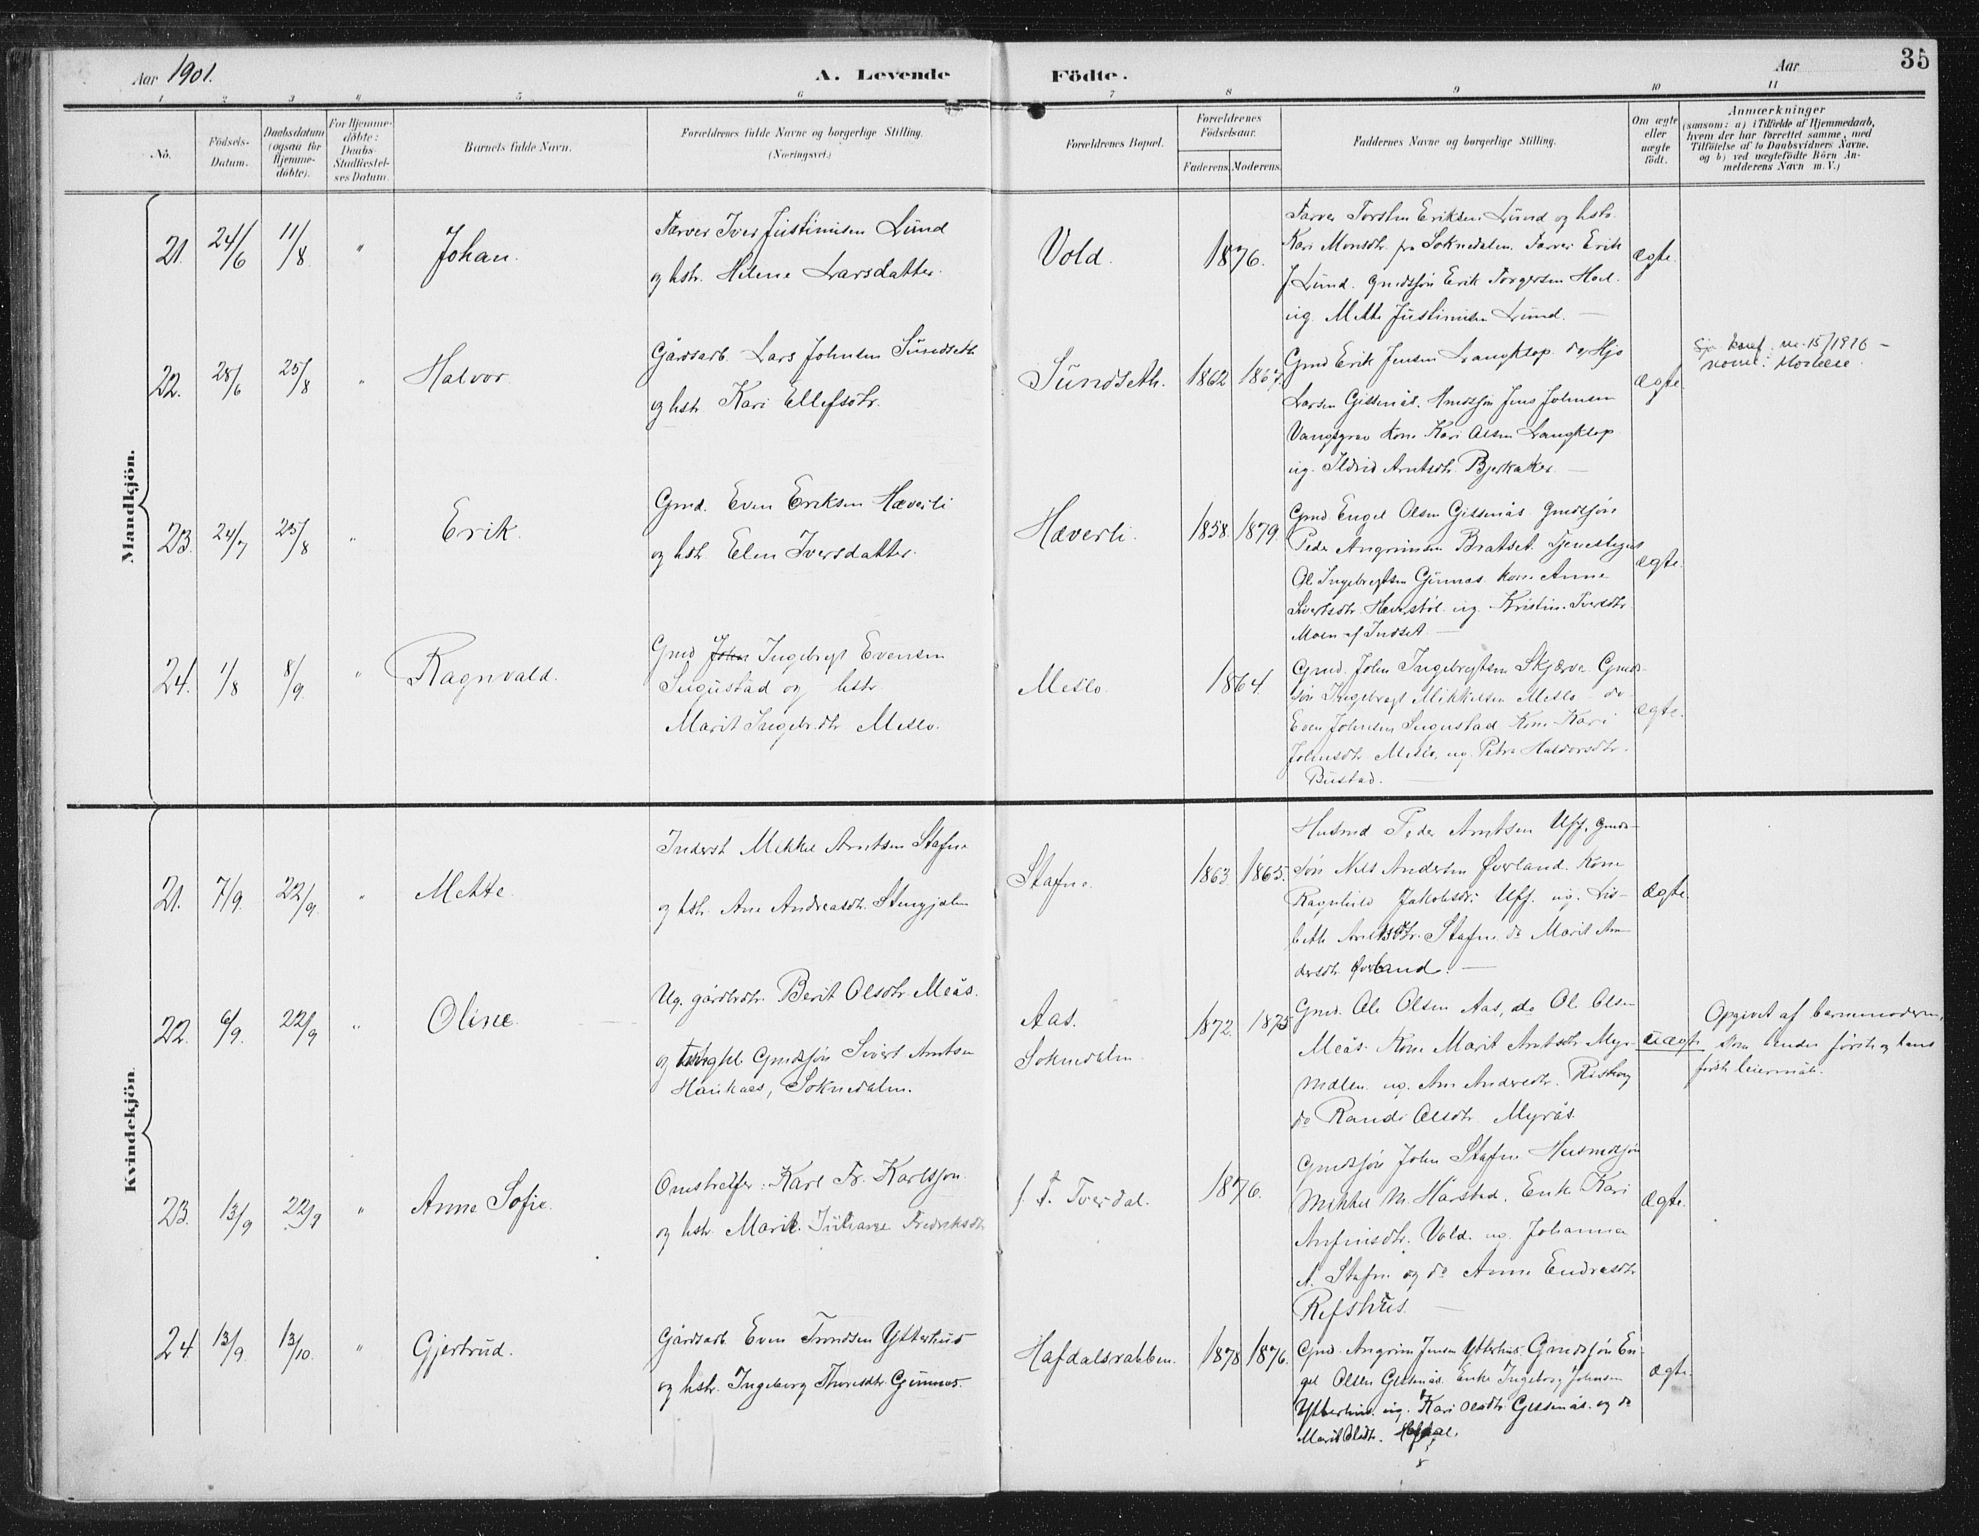 Aar 1901.
A. Levende Födte.
Aar
35
1 2 3 4 5 6 7 8 9 10 11
No.
Födsels-
Datum.
Daabsdatum
(ogsaa for
Hjemme-
döbte).
For Hjemme-
döbte:
Daabs-
Stadfæstel-
ses Datum.
Barnets fulde Navn.
Forældrenes fulde Navne og borgerlige Stilling.
(Næringsvei.)
Forældrenes Bopæl.
Forældrenes
Födselsaar.
Faderens. Moderens.
Faddernes Navne og borgerlige Stilling.
Om ægte
eller
uægte
födt.
Anmærkninger
(saasom: a) i Tilfælde af Hjemmedaab,
hvem der har forrettet samme, med
Tilföielse af to Daabsvidners Navne.
og b) ved uægtefödte Börn An-
melderens Navn m. V.)
Mandkjön.
21. 24/6 11/8 " Johan.
Farver Iver Justinusen Lund
og hstr. Helene Larsdatter.
Vold. 1876.
Farver Torsten Eriksen Lund og hstr.
Kari Monsdtr. fra Soknedalen. Farver Erik
J Lund. Gmdsjøn Erik Torgersen Hoel.
ug. Mette Justinusen Lund. —
ægte.
22. 28/6 25/8 " Halvor.
Gårdsarb. Lars Johnsen Sundseth
og hstr. Kari Ellefsdtr.
Sundseth. 1862 1867.
Gmd Erik Jensen Langklop. do
Larsen Gissnås. Gmdsjøn Jens Johnsen
Vangsgrav Kone Kari Olsen Langklop
ug. Ildrid Arntsdtr. Bjerkaker. —
ægte
konf. nr. 15/1916 –
23. 24/7 25/8 " Erik.
Gmd. Even Eriksen Hæverli
og hstr. Elen Iversdatter.
Hæverli. 1858. 1879.
Gmd. Engel Olsen Gissnås. Gmdsjøn
Peder Angrimsen Bratset. Tjenestegut
Ole Ingebrigtsen Gunnes. Kone Anne
Sivertsdtr. Hæverstøl. ug. Kristine Iversdtr
Moen af Indset. —
ægte.
24. 1/8 8/9 " Ragnvald.
Gmd John Ingebrigt Evensen
Sugustad og hstr.
Marit Ingebr.dtr Meslo.
Meslo. 1864.
Gmd. John Ingebrigtsen Skjerve. Gmds-
søn Ingebrigt Mikkelsen Meslo do
Even Johnsen Sugustad Kone Kari
Johnsdtr Meslo, ug. Petra Halvorsdtr.
Bustad. —
ægte.
Kvindekjön
21. 7/9. 22/9. " Mette.
Inderst Mikkel Arntsen Stafne
og hstr. Ane Andreasdtr.
Stafne. 1863. 1865.
Husmd Peder Arntsen Uff. Gmds-
Søn Nils Andersen Øverland. Kone
Ragnhild Jakobsdtr. Uff. ug. Lis-
beth Arntsdtr. Stafne. do Marit An-
dersdtr. Øverland. —
ægte.
22. 6/9. 22/9 " Oline.
Ug. gårdbrdtr. Berit Olsdtr. Meås.
og Gmdsjøn Sivert Arntsen
Haukaas, Soknedalen.
Aas.
Soknedalen
1872. 1875
Gmd. Ole Olsen Aas, do Ol. Olsen
Meås. Kone Marit Arntsdtr Myr-
ug. Ane Andersdtr.
do Randi Olsdtr Myrås.
uægte
Opgivet af barnemoderen,
som hendes første og hans
første leiermål.
23. 13/9 22/9 " Anne Sofie.
Omstreifer: Karl Fr. Karlsson
og hstr. Marit Juliane Fredriksdtr
f. T. Tverdal. 1876.
Gmdsjøn John Stafne Husmdsjøn
Mikkel M. Harstad. Enke Kari
Anfinsdtr. Vold. ug. Johanna
A. Stafne og do Anne Endresdtr
Refshus. —
ægte.
24. 13/9. 13/10. " Gjertrud.
Gårdsarb. Even Trondsen Ytterhus
og hstr. Ingeborg Thoresdtr. Gunnes.
Hafdalsrabben. 1878 1876.
Gmd. Angrim Jensen Ytterhus. Gmdsjøn En-
gel Olsen Gissnås. Enke Ingeborg Johnsen
Ytterhus. ug. Kari Olsdtr Gissnås. og do
Marit Olsdtr. Hafdal.
ægte.